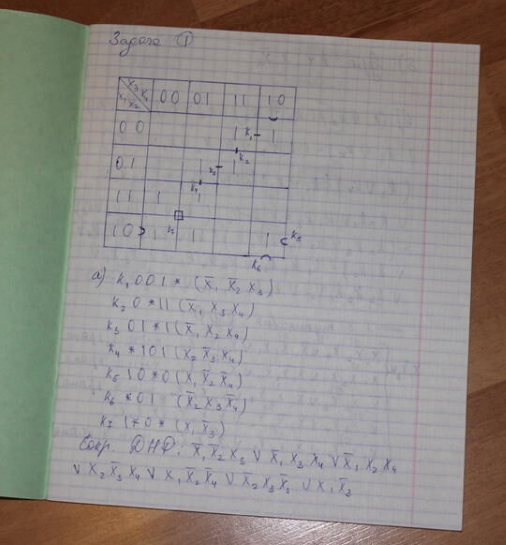 Задача ①
x₃x₄ 00 01 11 10
x₁x₂
00 1 k₁ 1
01 1 k₃ 1 k₂
11 1 k₄ 1
10 1 k₇ 1 1 k₅
k₆
а) k₁ 001* (x̄₁ x̄₂ x₃)
k₂ 0*11 (x̄₁ x₃ x₄)
k₃ 01*1 (x̄₁ x₂ x₄)
k₄ *101 (x₂ x̄₃ x₄)
k₅ 10*0 (x₁ x̄₂ x̄₄)
k₆ *01 (x̄₂ x₃ x̄₄)
k₇ 1*0* (x₁ x̄₃)
Сокр. ДНФ: x̄₁ x̄₂ x₃ ∨ x̄₁ x₃ x₄ ∨ x̄₁ x₂ x₄
∨ x₂ x̄₃ x₄ ∨ x₁ x̄₂ x̄₄ ∨ x̄₂ x₃ x̄₄ ∨ x₁ x̄₃